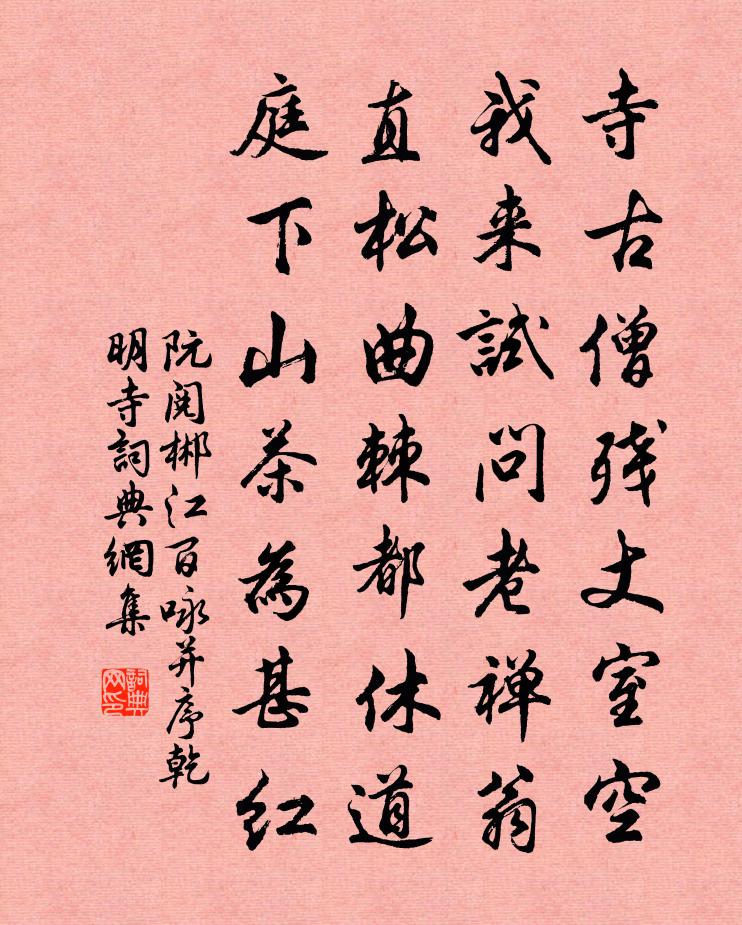 寺古僧残丈室空
我来試問老禅翁
直松曲棘都休道
庭下山茶為甚紅
阮閱郴江百咏并序乾
明寺詞典網集
詞典网印